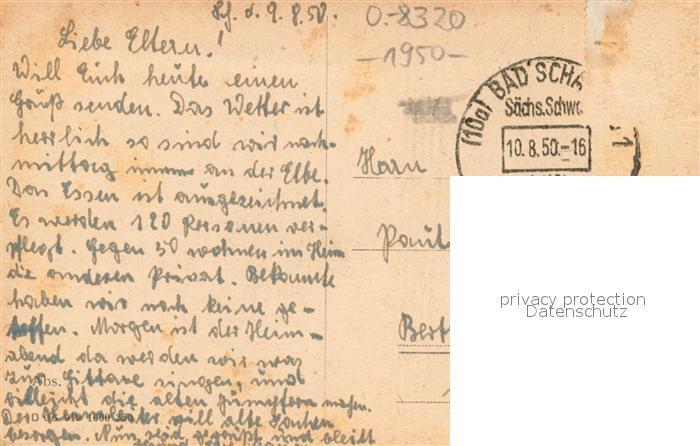 Sch. d. 9.8.50.
Liebe Eltern!
Will Euch heute einen
Gruß senden. Das Wetter ist
herrlich so sind wir nach-
mittag immer an der Elbe.
Das Essen ist ausgezeichnet.
Es werden 120 Personen ver-
pflegt. Gegen 50 wohnen im Heim
die anderen Privat. Bekannte
haben wir noch keine ge-
troffen. Morgen ist der Heim-
abend da werden wir was
zur Gittare singen, und
villeicht die alten Jümpfern machen.
Der will alte Sachen
besorgen. Nun seid gegrüßt und bleibt
Abs.
O.-8320
-1950-
(10a) BAD SCHA
Sächs. Schwe
10.8.50.-16
Herrn
Paul
Bert
privacy protection
Datenschutz